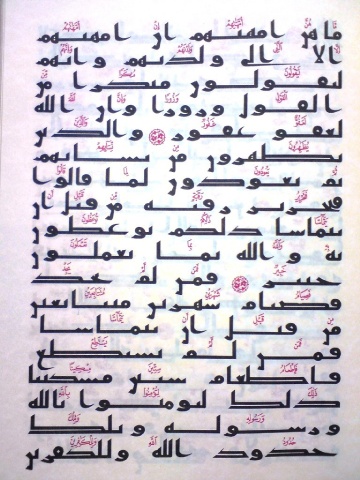 ما هن امهتهم ان امهتهم
الا الى ولدنهم وانهم
ليقولون منكرا من
القول وزورا وان الله
لعفو غفور والذين
يظهرون من نسايهم
ثم يعودون لما قالوا
فتحرير رقبة من قبل ان
يتماسا ذلكم توعظون
به والله بما تعملون
خبير فمن لم يجد
فصيام شهرين متتابعين
من قبل ان يتماسا
فمن لم يستطع
فاطعام ستين مسكينا
ذلك لتومنوا بالله
ورسوله وتلك
حدود الله وللكفرين